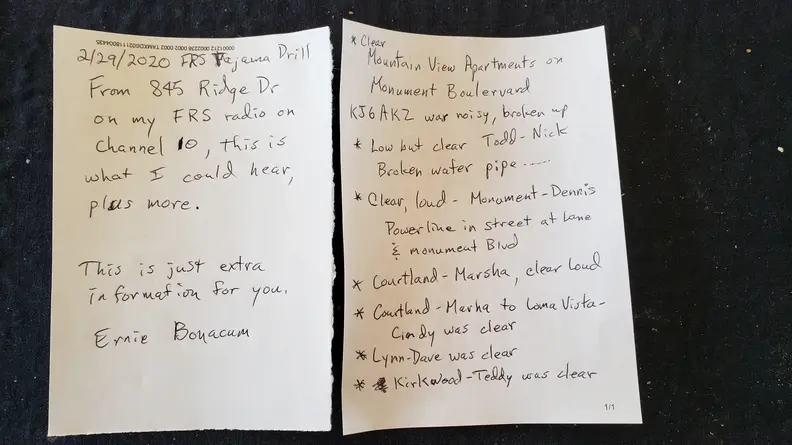 2/29/2020 FRS Pajama Drill
From 845 Ridge Dr
on my FRS radio on
Channel 10, this is
what I could hear,
plus more.
This is just extra
information for you.
Ernie Bonacum
* Clear
Mountain View Apartments on
Monument Boulervard
KJ6AKZ was noisy, broken up
* Low but clear Todd-Nick
Broken water pipe .....
* Clear, loud - Monument-Dennis
Powerline in street at Lane
& monument Blvd
* Courtland-Marsha, clear loud
* Courtland-Marha to Loma Vista-
Cindy was clear
* Lynn-Dave was clear
* Kirkwood-Teddy was clear
1/1